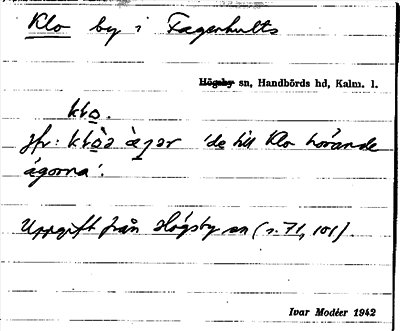 Klo by i Fagerhults
Högsby sn, Handbörds hd, Kalm. l.
klo.
jfr: kloa ägər 'de till Klo hörande
ägorna'.
Uppgift från Högsby sn (s. 71, 101).
Ivar Modéer 1942